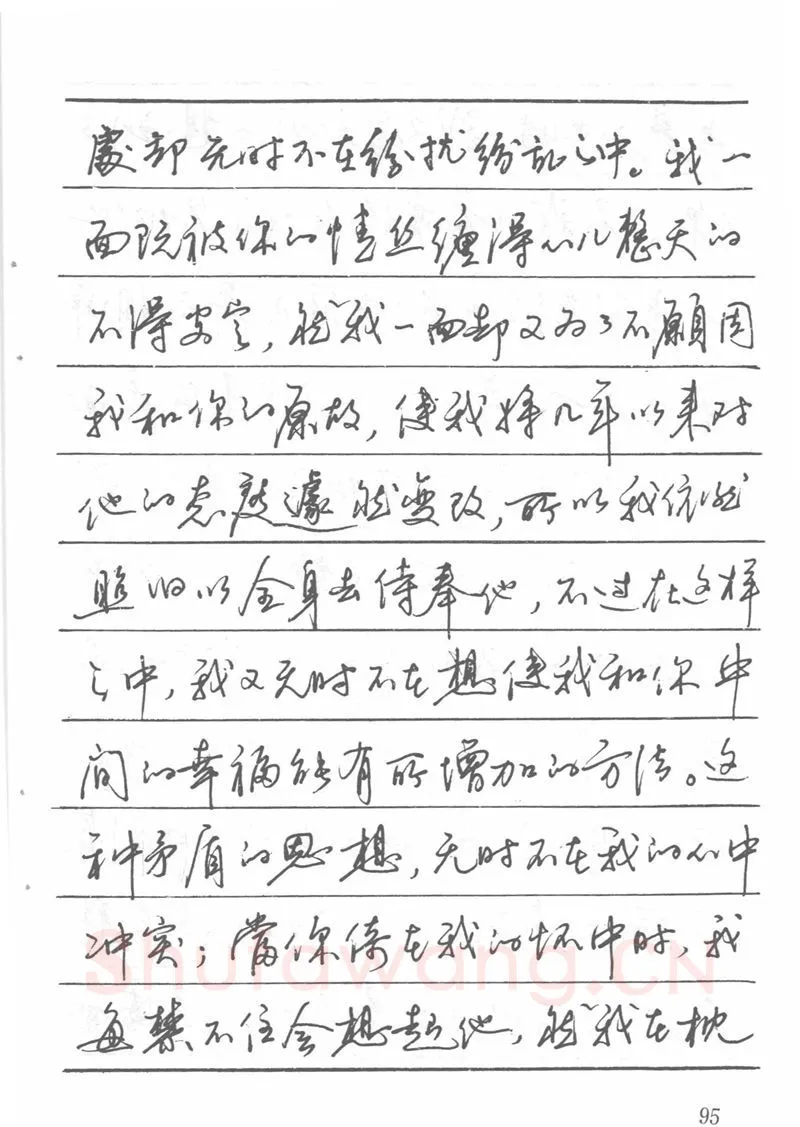 处却无时不在纷扰纷乱之中。我一
面既被你的情丝缠得心儿整天的
不得安定，然我一面却又为了不愿因
我和你的原故，使我将几年以来对
他的态度遽然变改，所以我依然
照旧以全身去侍奉他，不过在这样
之中，我又无时不在想使我和你中
间的幸福能有所增加的方法。这
种矛盾的思想，无时不在我的心中
冲突；当你倚在我的怀中时，我
每禁不住会想起他，然我在枕
Shufawang.CN
95